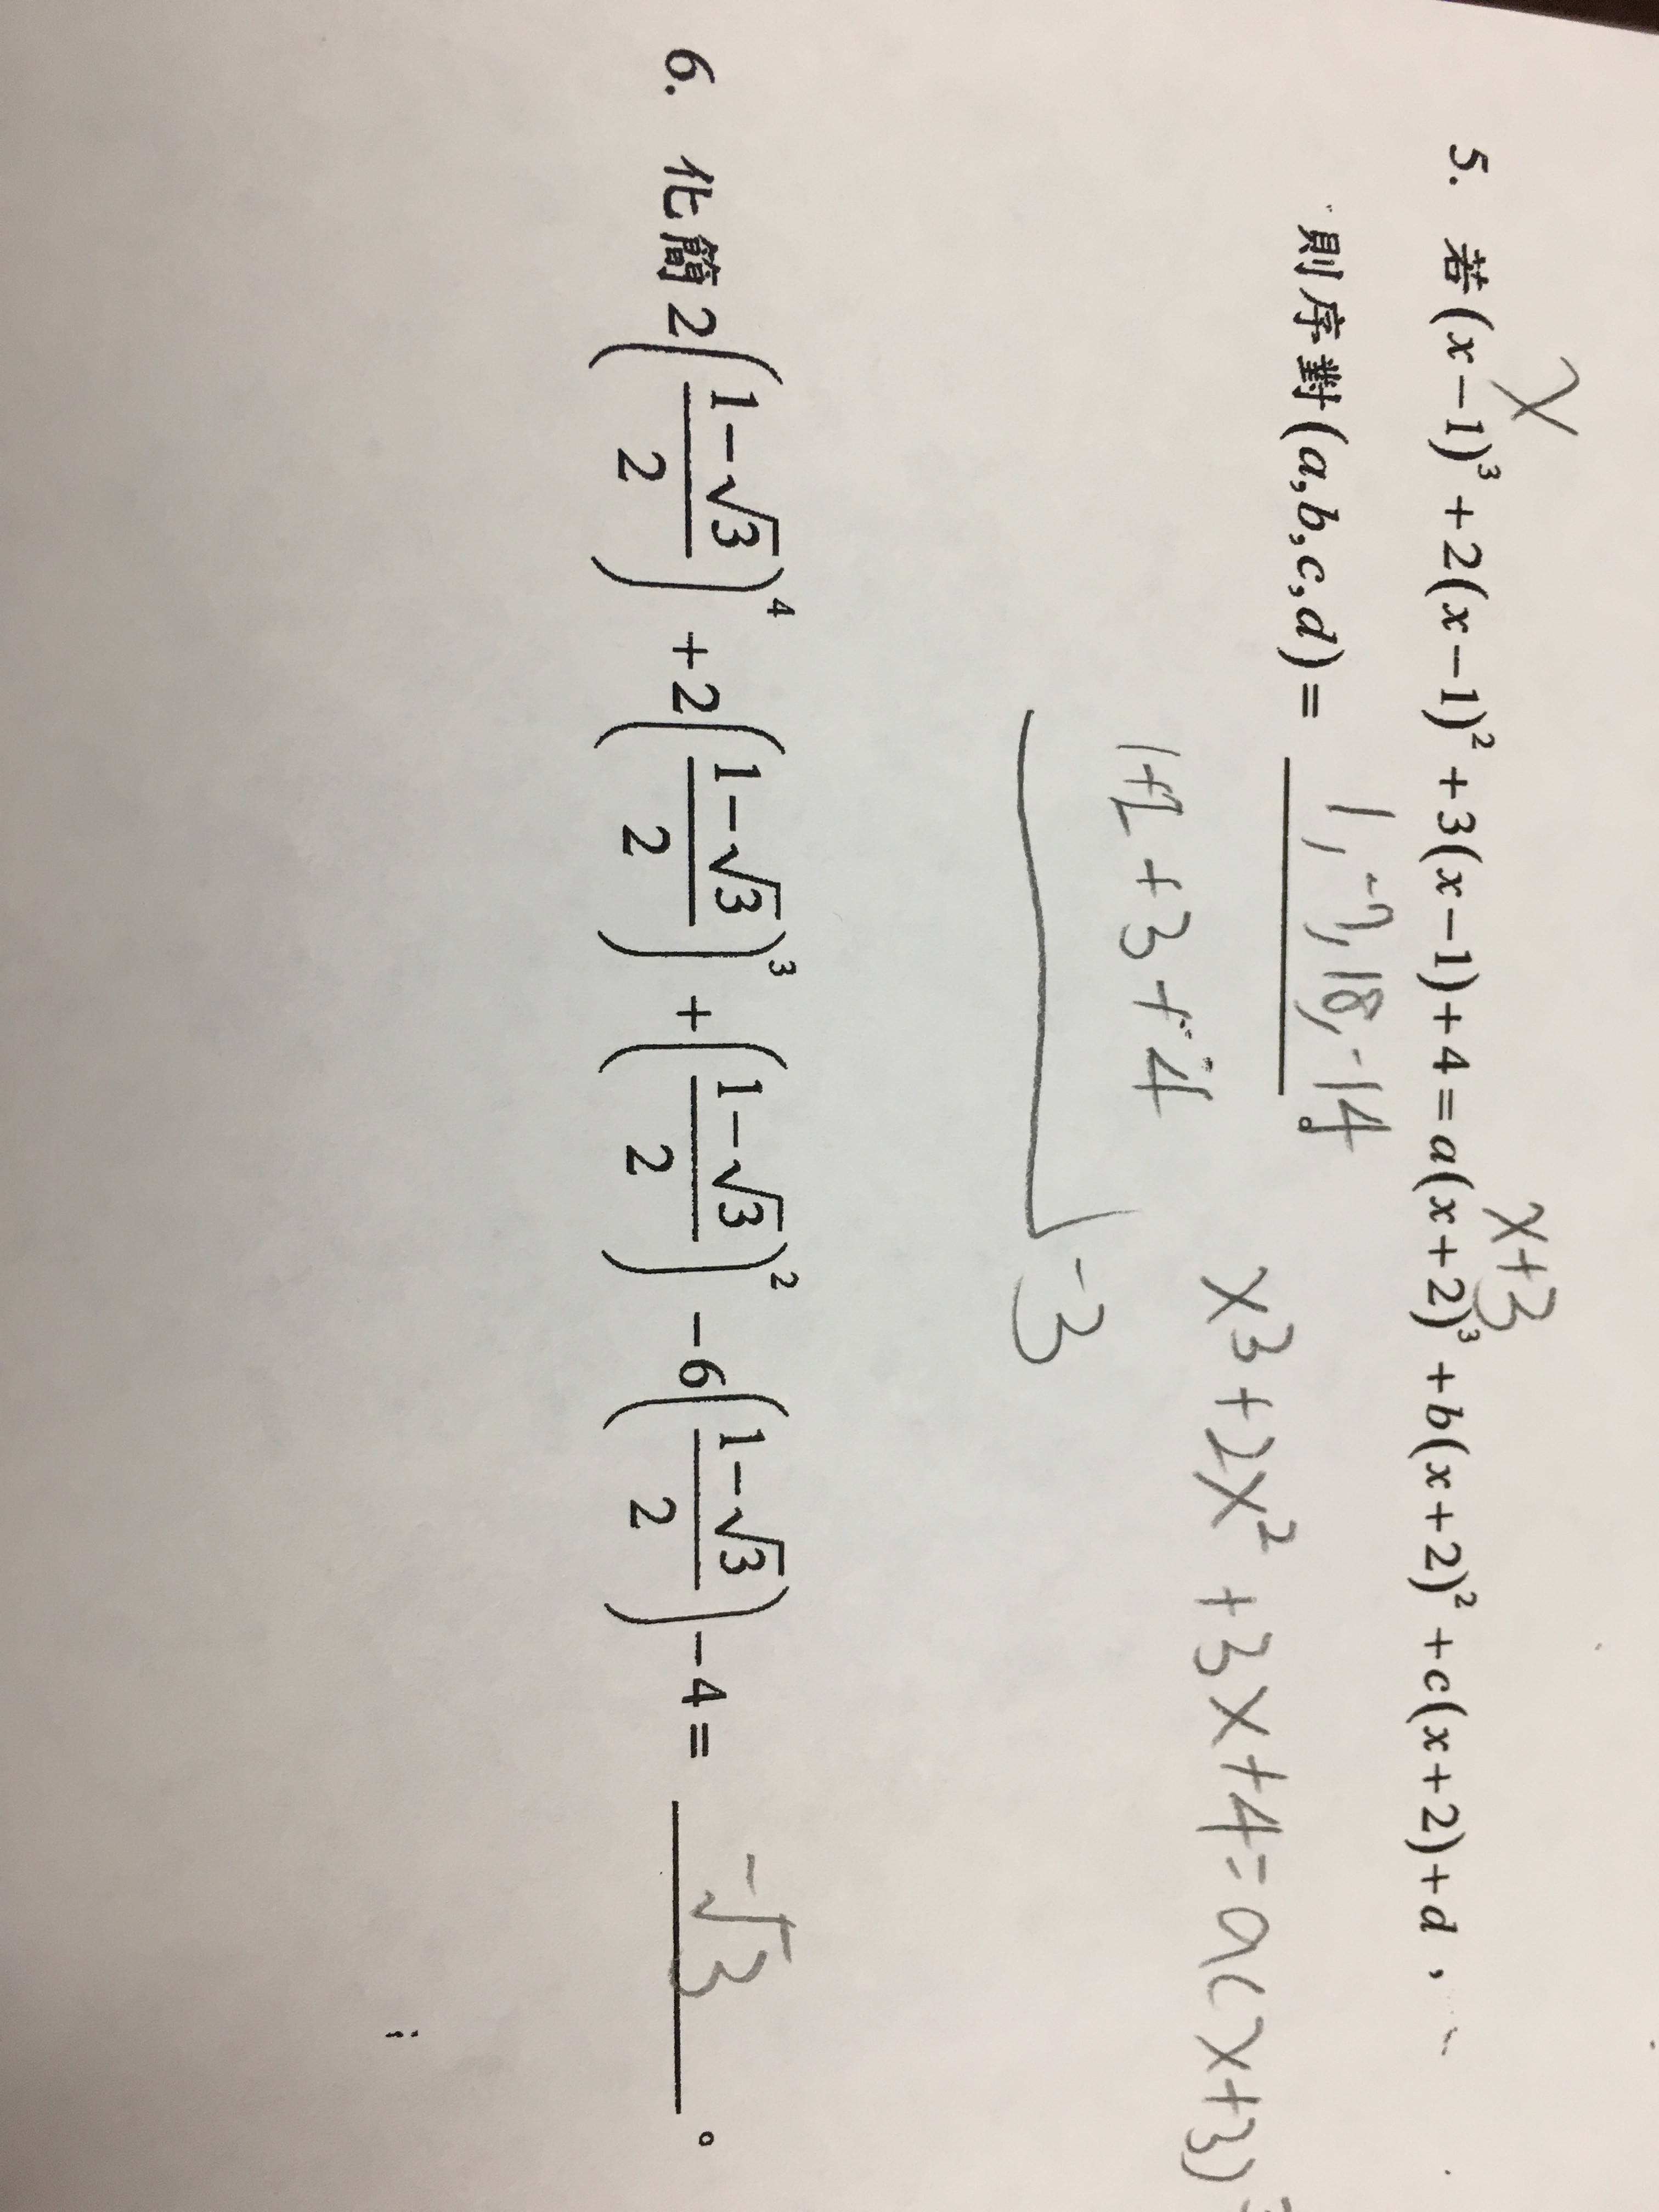 x
x+3
5. 若(x−1)³+2(x−1)²+3(x−1)+4=a(x+2)³+b(x+2)²+c(x+2)+d，
則序對(a,b,c,d)= 1,-7,18,-14。
x3+2x²+3x+4=a(x+3)
1+2+3+4
-3
6. 化簡2((1−√3)/2)⁴+2((1−√3)/2)³+((1−√3)/2)²−6((1−√3)/2)−4= -√3。